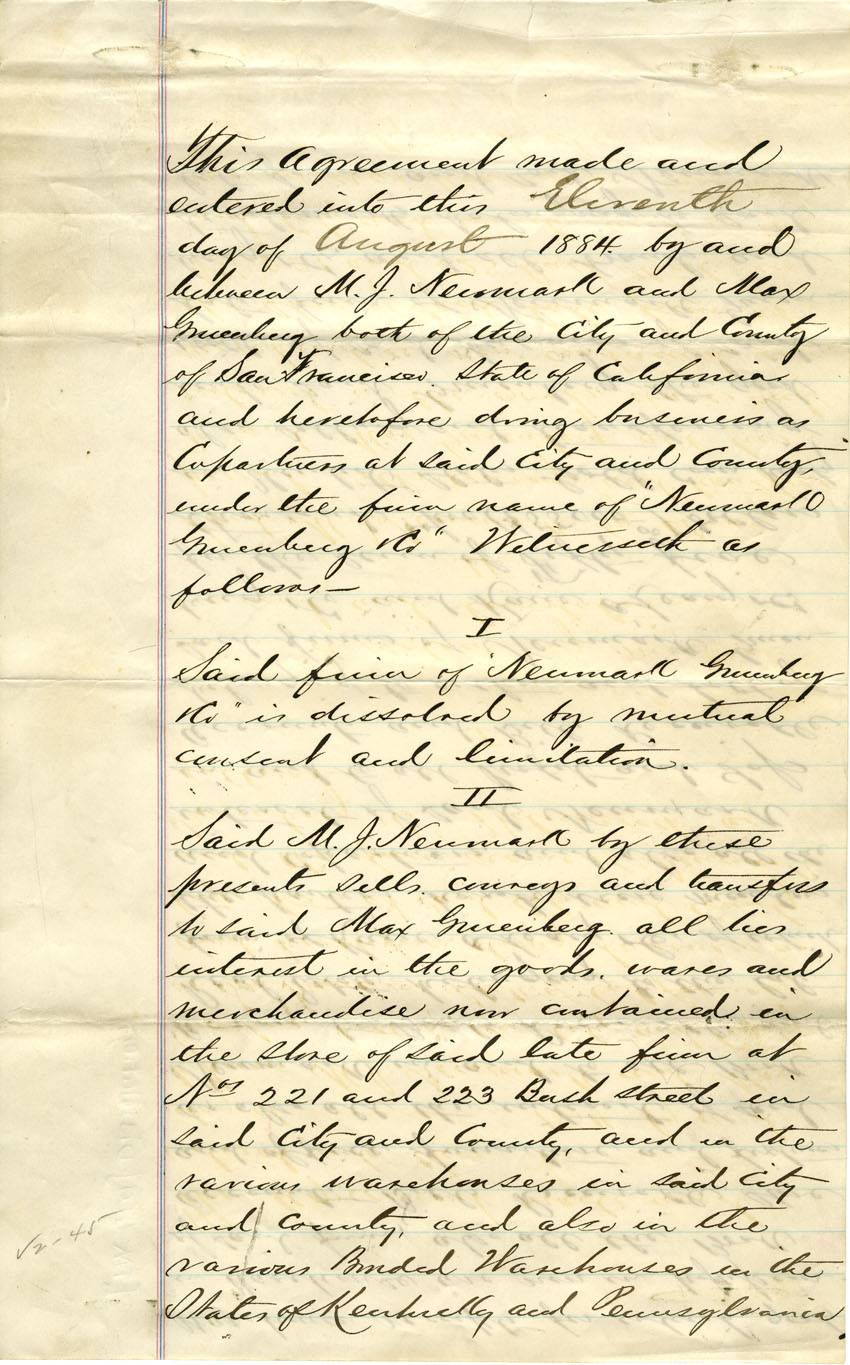 This Agreement made and
entered into this Eleventh
day of August 1884. by and
between M. J. Newmark and Max
Gruenberg both of the City and County
of San Francisco. State of California
and heretofore doing business as
Copartners at said City and County,
under the firm name of "Newmark
Gruenberg & Co" Witnesseth as
follows—
I
Said firm of "Newmark Gruenberg
& Co" is dissolved by mutual
consent and limitation.
II
Said M. J. Newmark by these
presents sells. conveys and transfers
to said Max Gruenberg. all his
interest in the goods. wares and
merchandise now contained in
the store of said late firm at
Nos 221 and 223 Bush street in
said City and County, and in the
various warehouses in said City
and County, and also in the
various Bonded Warehouses in the
States of Kentucky and Pennsylvania.